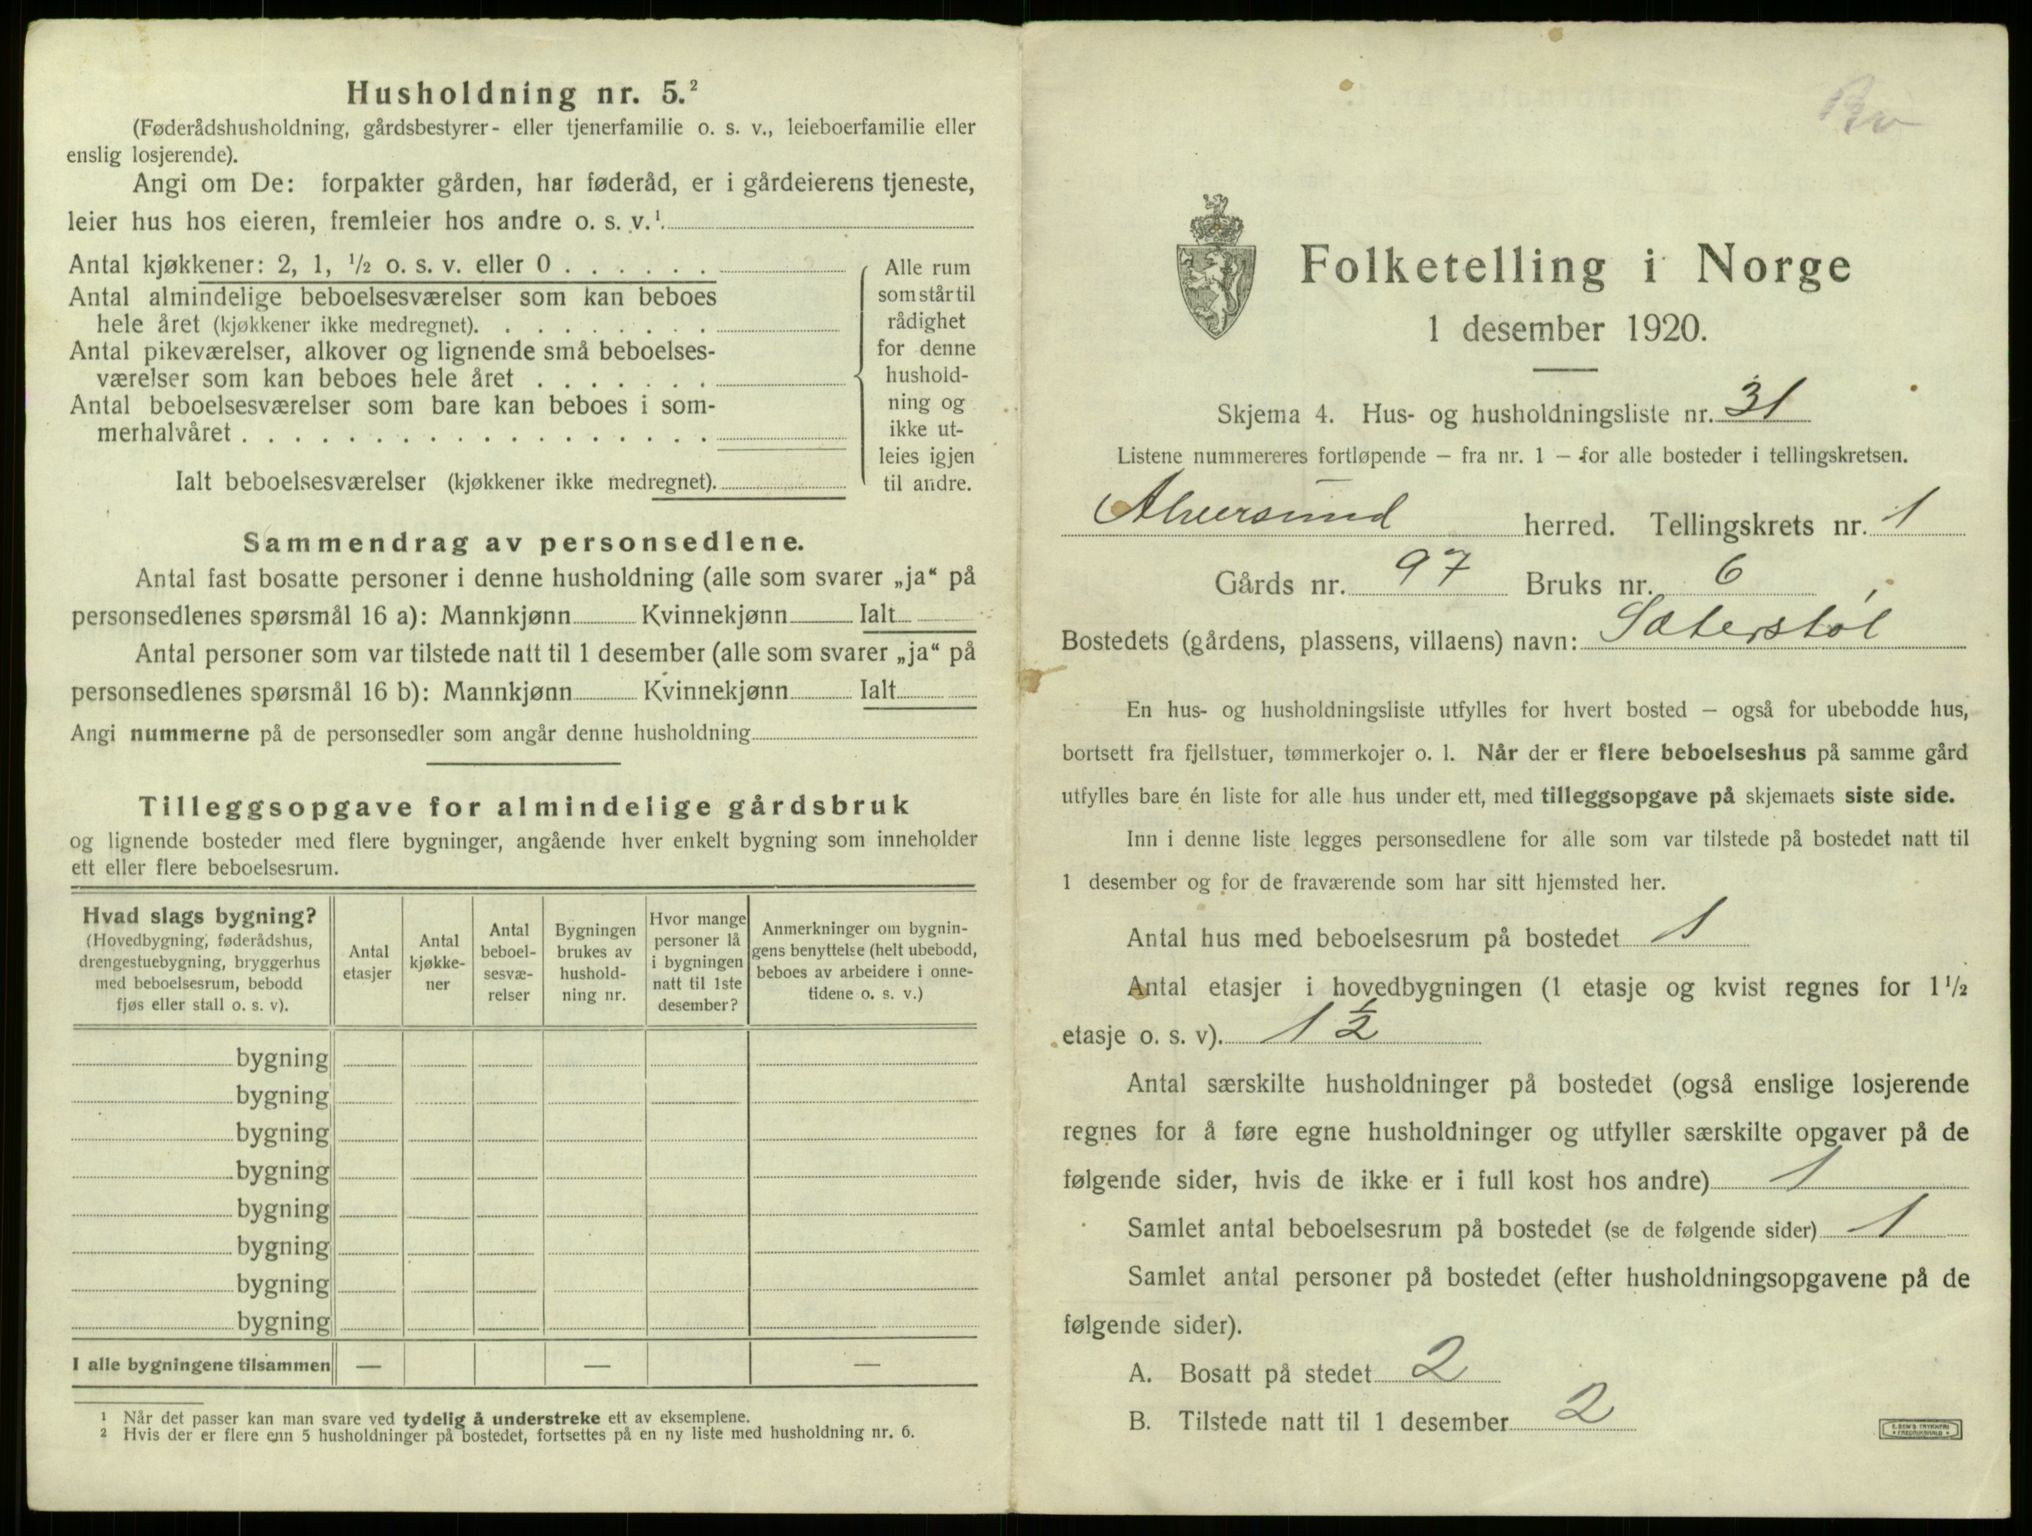 Husholdning nr. 5.²
(Føderådshusholdning, gårdsbestyrer- eller tjenerfamilie o. s. v., leieboerfamilie eller
enslig losjerende).
Angi om De: forpakter gården, har føderåd, er i gårdeierens tjeneste,
leier hus hos eieren, fremleier hos andre o. s. v.¹
Antal kjøkkener: 2, 1, ½ o. s. v. eller 0 . . . . . .
Antal almindelige beboelsesværelser som kan beboes
hele året (kjøkkener ikke medregnet). . . . . . . . .
Antal pikeværelser, alkover og lignende små beboelses-
værelser som kan beboes hele året . . . . . . .
Antal beboelsesværelser som bare kan beboes i som-
merhalvåret . . . . . . . . . . . . . . . . . .
Ialt beboelsesværelser (kjøkkener ikke medregnet).
Alle rum
som står til
rådighet
for denne
hushold-
ning og
ikke ut-
leies igjen
til andre.
Sammendrag av personsedlene.
Antal fast bosatte personer i denne husholdning (alle som svarer „ja“ på
personsedlenes spørsmål 16 a): Mannkjønn Kvinnekjønn Ialt
Antal personer som var tilstede natt til 1 desember (alle som svarer „ja“ på
personsedlenes spørsmål 16 b): Mannkjønn Kvinnekjønn Ialt
Angi nummerne på de personsedler som angår denne husholdning
Tilleggsopgave for almindelige gårdsbruk
og lignende bosteder med flere bygninger, angående hver enkelt bygning som inneholder
ett eller flere beboelsesrum.
Hvad slags bygning?
(Hovedbygning, føderådshus,
drengestuebygning, bryggerhus
med beboelsesrum, bebodd
fjøs eller stall o. s. v).
Antal
etasjer
Antal
kjøkke-
ner
Antal
beboel-
sesvæ-
relser
Bygningen
brukes av
hushold-
ning nr.
Hvor mange
personer lå
i bygningen
natt til 1ste
desember?
Anmerkninger om bygnin-
gens benyttelse (helt ubebodd,
beboes av arbeidere i onne-
tidene o. s. v.)
bygning
bygning
bygning
bygning
bygning
bygning
bygning
bygning
I alle bygningene tilsammen — — —
¹ Når det passer kan man svare ved tydelig å understreke ett av eksemplene.
² Hvis der er flere enn 5 husholdninger på bostedet, fortsettes på en ny liste med husholdning nr. 6.
Folketelling i Norge
1 desember 1920.
Skjema 4. Hus- og husholdningsliste nr. 31
Listene nummereres fortløpende – fra nr. 1 – for alle bosteder i tellingskretsen.
Alversund herred. Tellingskrets nr. 1
Gårds nr. 97 Bruks nr. 6
Bostedets (gårdens, plassens, villaens) navn: Sæterstøl
En hus- og husholdningsliste utfylles for hvert bosted – også for ubebodde hus,
bortsett fra fjellstuer, tømmerkojer o. l. Når der er flere beboelseshus på samme gård
utfylles bare én liste for alle hus under ett, med tilleggsopgave på skjemaets siste side.
Inn i denne liste legges personsedlene for alle som var tilstede på bostedet natt til
1 desember og for de fraværende som har sitt hjemsted her.
Antal hus med beboelsesrum på bostedet 1
Antal etasjer i hovedbygningen (1 etasje og kvist regnes for 1 ½
etasje o. s. v). 1 ½
Antal særskilte husholdninger på bostedet (også enslige losjerende
regnes for å føre egne husholdninger og utfyller særskilte opgaver på de
følgende sider, hvis de ikke er i full kost hos andre) 1
Samlet antal beboelsesrum på bostedet (se de følgende sider) 1
Samlet antal personer på bostedet (efter husholdningsopgavene på de
følgende sider).
A. Bosatt på stedet 2
B. Tilstede natt til 1 desember 2